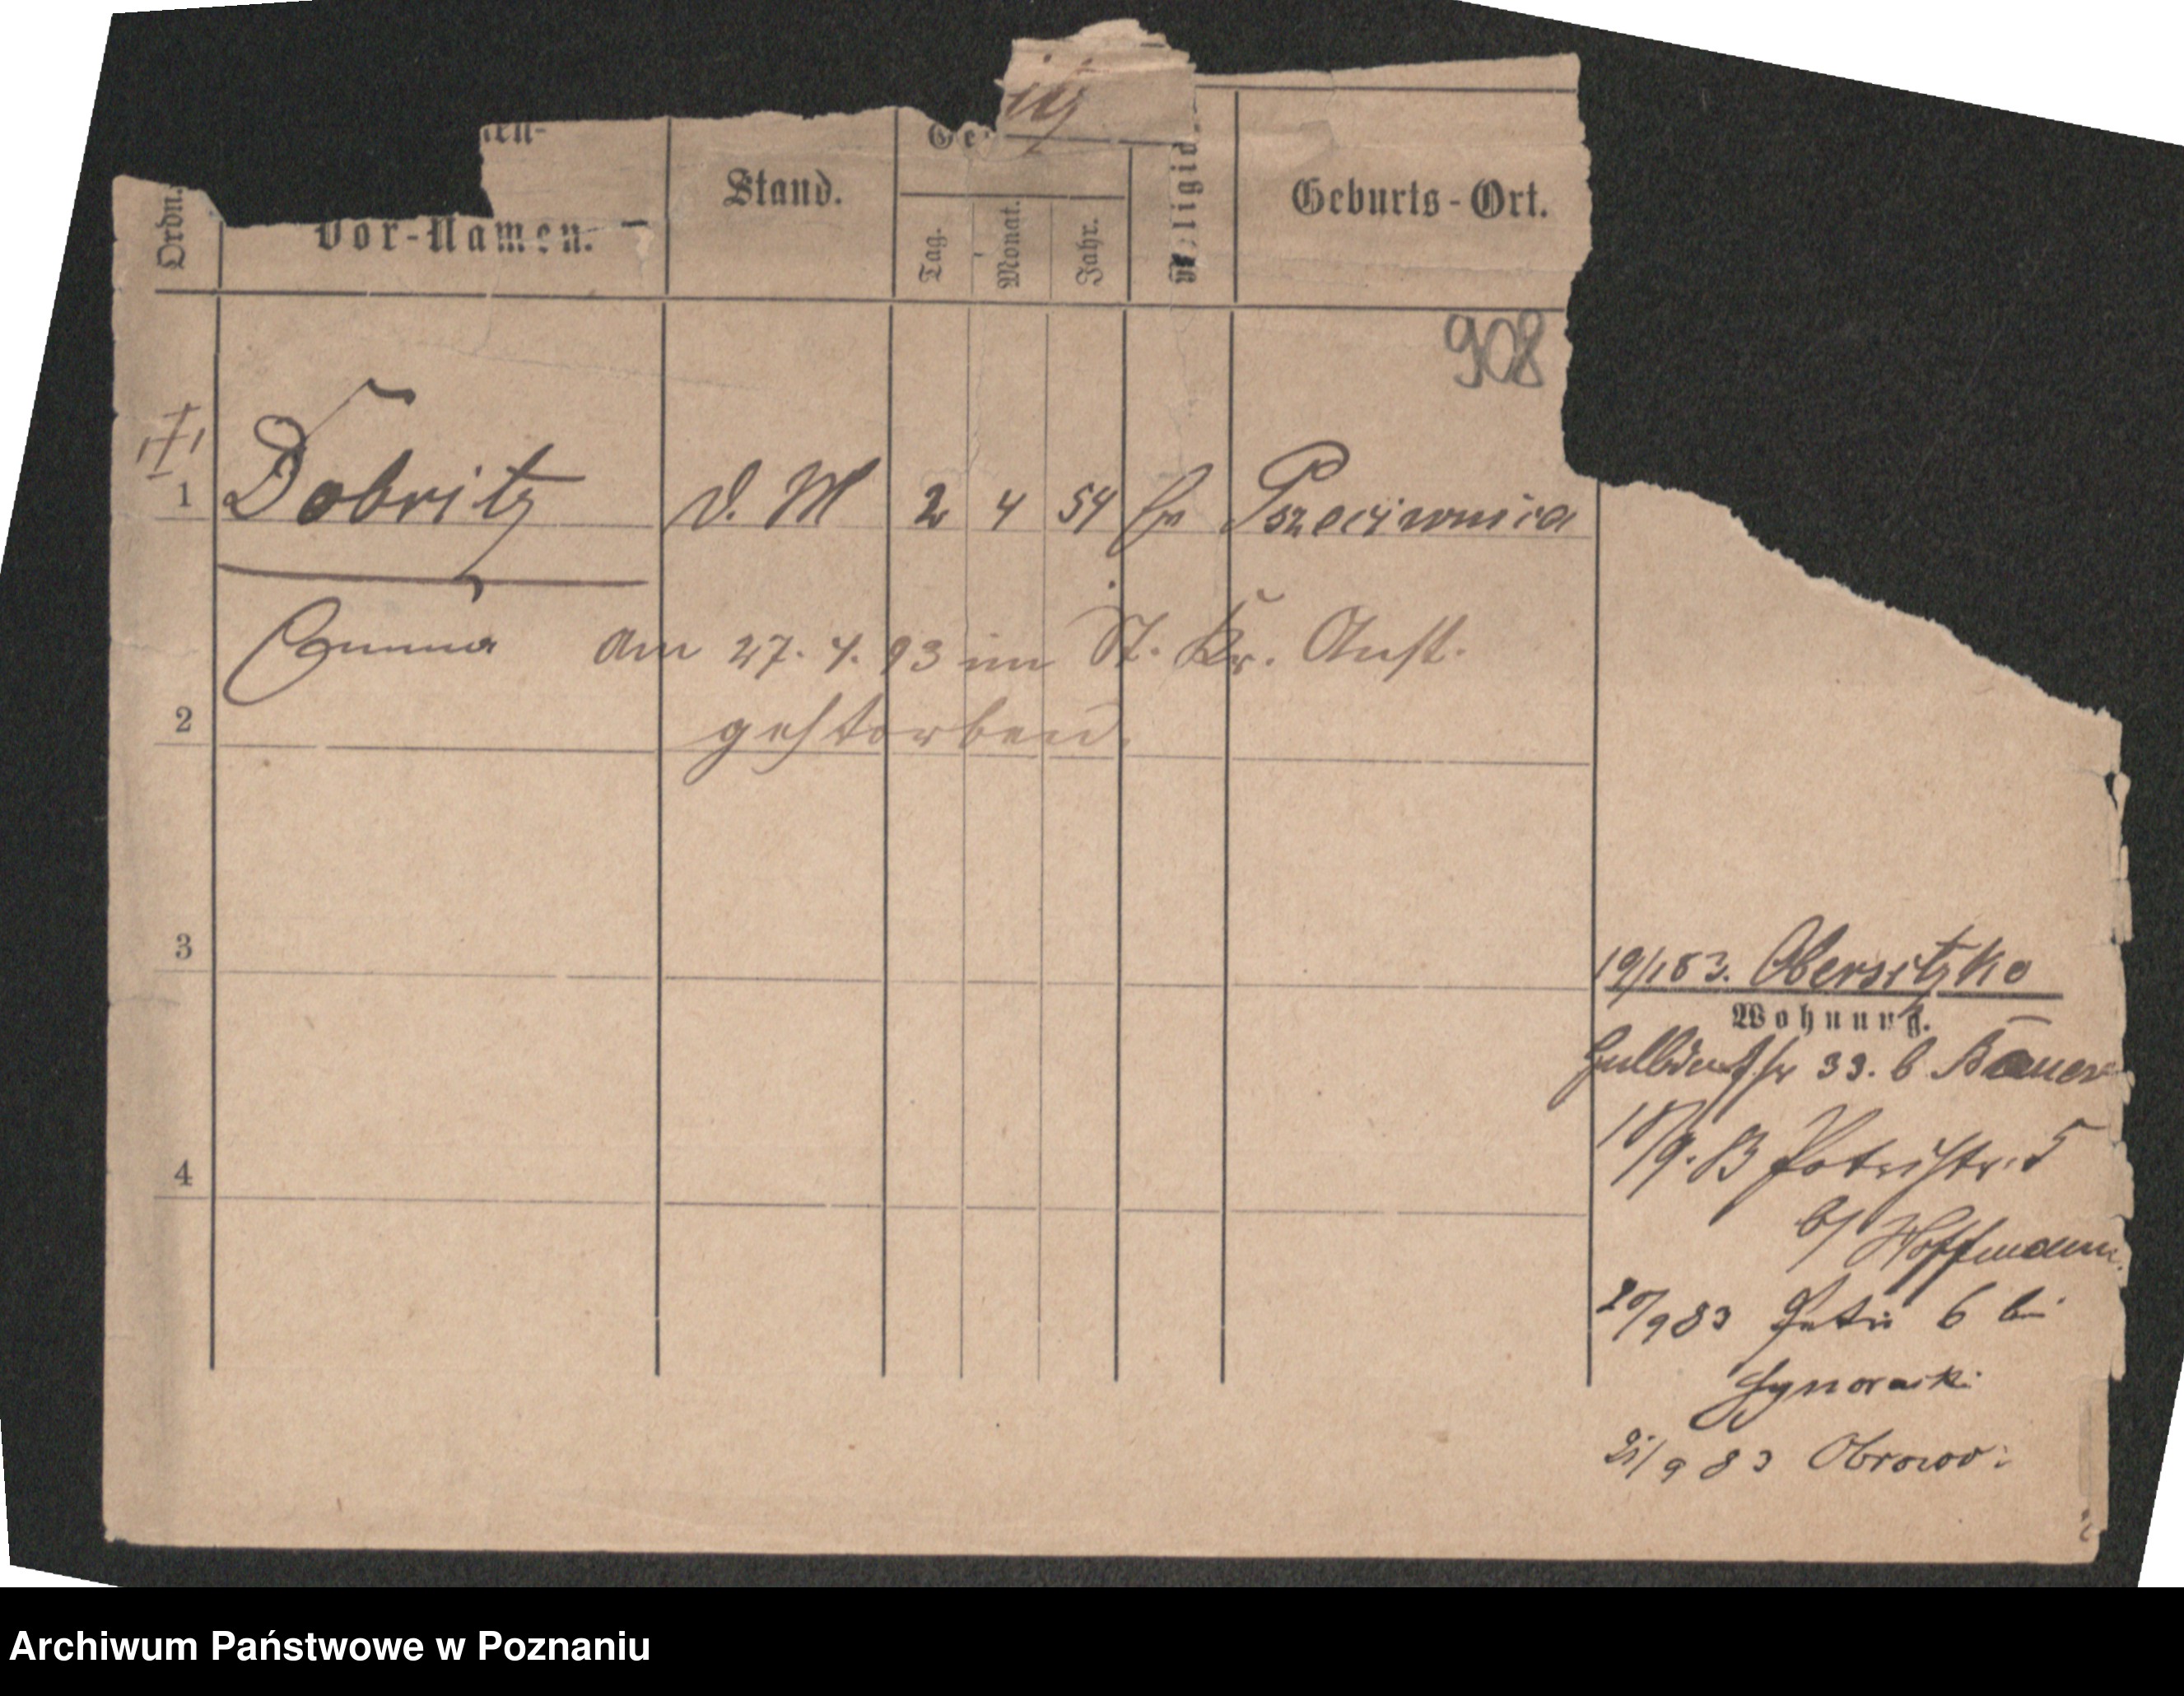 itz
en-
Vor-Namen.
Stand.
Ge
Geburts-Ort.
Ordn.
Tag.
Monat.
Jahr.
Religio
908
1 Dobritz D. M 2 4 54 Ev
Emma am 27. 4. 93 im St. Kr. Anst.
2 gestorben.
3
19/1 83. Obersitzko
Wohnung.
33. b Bauer
18/9. 83 Petristr. 5
4
b/ Hoffmann
20/9 83 Petri 6 bei
21/9 83
Archiwum Państwowe w Poznaniu